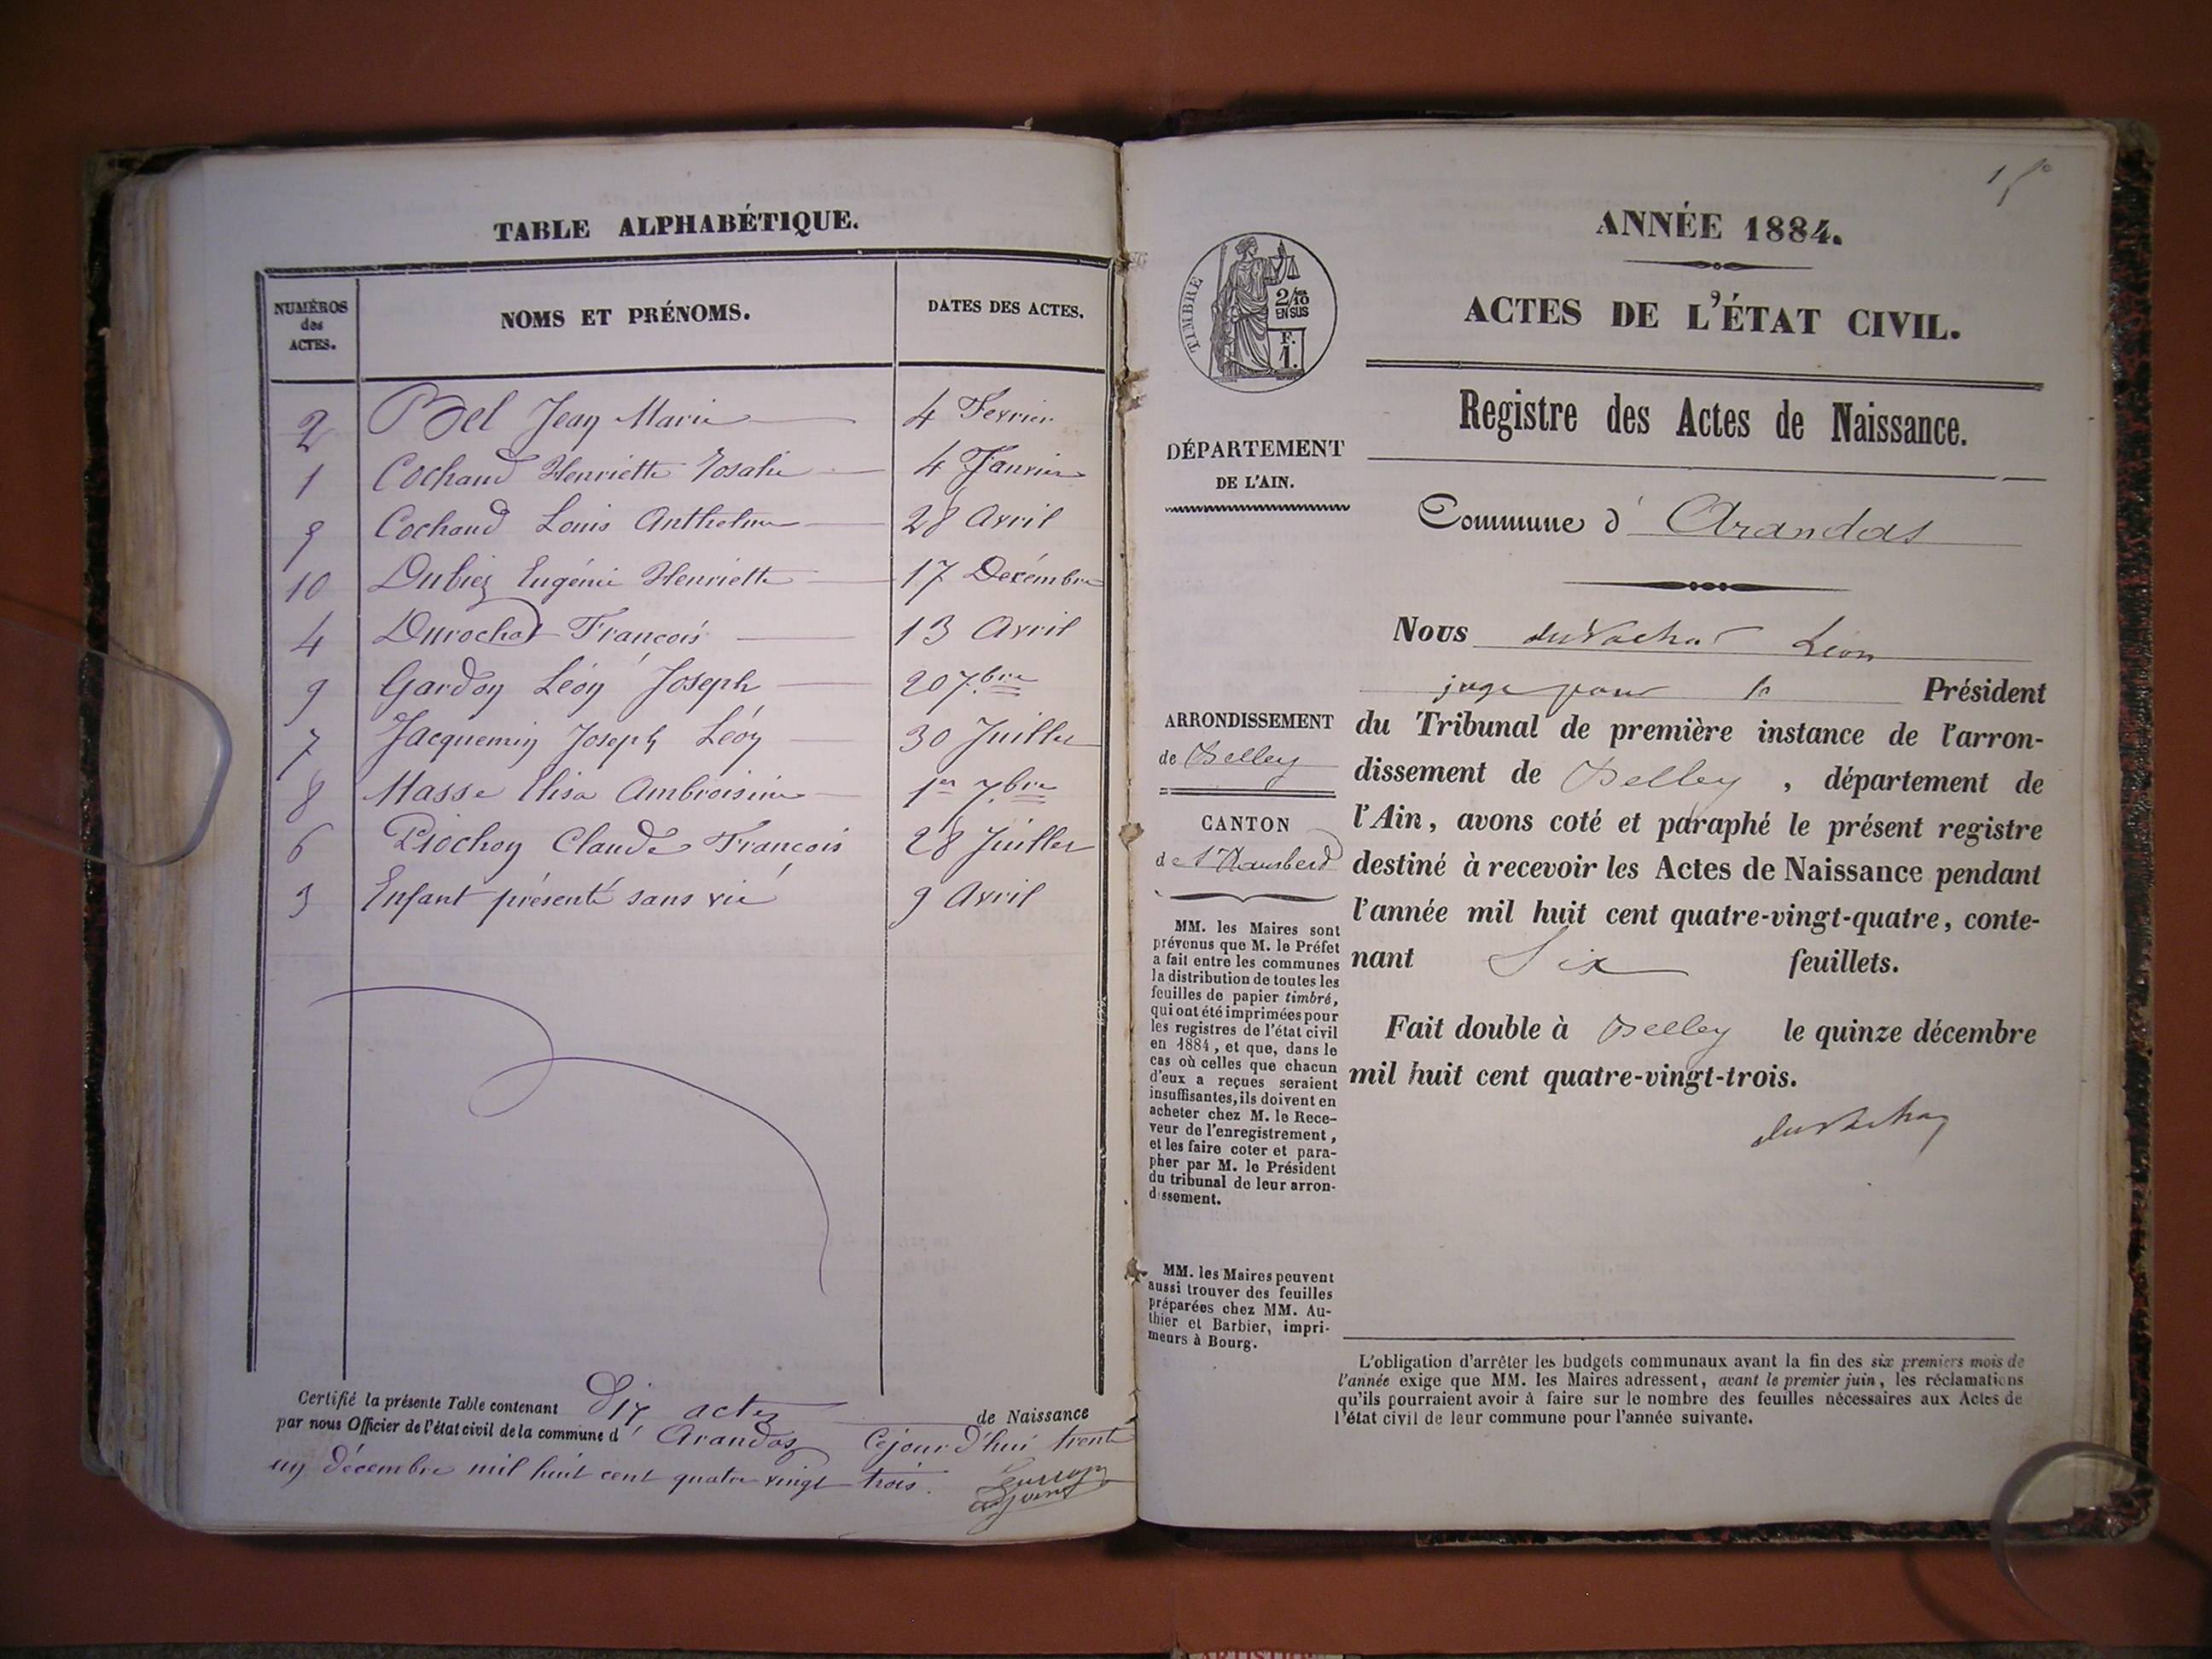 TABLE ALPHABÉTIQUE.
NUMÉROS des ACTES.
NOMS ET PRÉNOMS.
DATES DES ACTES.
2 Bel Jean Marie 4 Fevrier
1 Cochaud Henriette Rosalie 4 Janvier
5 Cochaud Louis Anthelme 28 Avril
10 Dubiez Eugénie Henriette 17 Décembre
4 Durochat François 13 Avril
9 Gardon Léon Joseph 20 7bre
7 Jacquemin Joseph Léon 30 Juillet
8 Masse Elisa Ambroisine 1er 7bre
6 Piochon Claude François 28 Juillet
3 Enfant présenté sans vie 9 Avril
Certifié la présente Table contenant Dix actes de Naissance
par nous Officier de l'état civil de la commune d' Arandas Cejourd'hui trente
un décembre mil huit cent quatre vingt trois.
adjoint
1 f°
ANNÉE 1884.
TIMBRE
2/10 EN SUS
F. 1.
ACTES DE L'ÉTAT CIVIL.
Registre des Actes de Naissance.
DÉPARTEMENT
DE L'AIN.
Commune d' Arandas
ARRONDISSEMENT
de Belley
CANTON
de St Rambert
MM. les Maires sont
prévenus que M. le Préfet
a fait entre les communes
la distribution de toutes les
feuilles de papier timbré,
qui ont été imprimées pour
les registres de l'état civil
en 1884, et que, dans le
cas où celles que chacun
d'eux a reçues seraient
insuffisantes, ils doivent en
acheter chez M. le Rece-
veur de l'enregistrement,
et les faire coter et para-
pher par M. le Président
du tribunal de leur arron-
dissement.
MM. les Maires peuvent
aussi trouver des feuilles
préparées chez MM. Au-
thier et Barbier, impri-
meurs à Bourg.
Nous duVachat Léon
juge pour le Président
du Tribunal de première instance de l'arron-
dissement de Belley, département de
l'Ain, avons coté et paraphé le présent registre
destiné à recevoir les Actes de Naissance pendant
l'année mil huit cent quatre-vingt-quatre, conte-
nant Six feuillets.
Fait double à Belley le quinze décembre
mil huit cent quatre-vingt-trois.
duVachat
L'obligation d'arrêter les budgets communaux avant la fin des six premiers mois de
l'année exige que MM. les Maires adressent, avant le premier juin, les réclamations
qu'ils pourraient avoir à faire sur le nombre des feuilles nécessaires aux Actes de
l'état civil de leur commune pour l'année suivante.